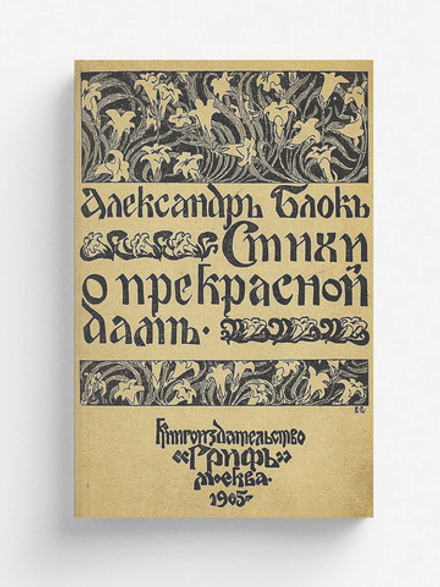 Александръ Блокъ
Стихи
о прекрасной
дамѣ.
Книгоиздательство
«Грифъ»
Москва.
1905 г